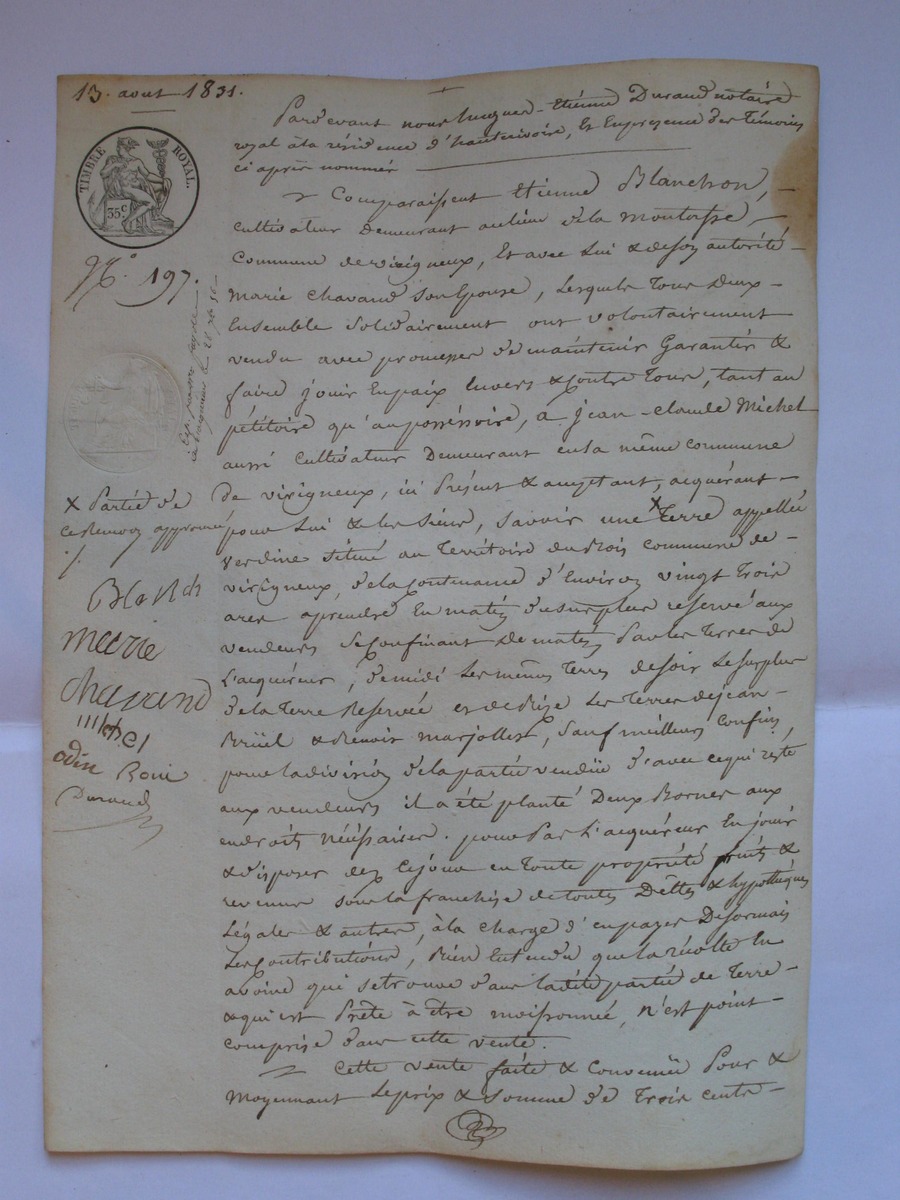 13. aout 1831.
Pardevant nous hugues-Etiénne Durand notaire
royal à la résidence d'hauterivoire, Et En presence des Témoins
ci après nommés
Comparaissent Etienne Blanchon,
Cultivateur Demeurant au lieu de la montasse,
Commune de virigneux, Et avec Lui & de son autorité
Marie Chavand Son Epouse, Lesquels Tous Deux
Ensemble Solidairement ont volontairement
vendu avec promesse de maintenir Garantir &
faire jouir En paix Envers & Contre Tous, tant au
pétitoire qu'au possessoire, à jean-claude Michel
aussi Cultivateur Demeurant en la même commune
De virigneux, ici Présent & acceptant, acquérant
pour Lui & les siens, Savoir une x Terre appellée
verdine Situé au Territoire du Bois commune de
virigneux, de la Contenance d'Environ vingt Trois
ares aprendre En matin du surplus reservé aux
vendeurs Se Confinant De matin Par les Terres de
L'acquéreur, de midi Les mêmes Terres de soir Le Surplus
de la Terre Reservée et de Bize Les Terres de jean
Brüel & Benoit marjollet, Sauf méilleurs Confins,
pour la division de la partie vendüe d'avec ce qui reste
aux vendeurs il a été planté Deux Bornes aux
endroits nécéssaires. pour Par L'acquéreur En jouir
& disposer dez Cejour en Toute propriété fruits &
revenus sous la franchise de toutes Dêttes & hypothèques
Légales & autres, à la charge d'en payer Desormais
Les Contributions, Bien Entendu que la récolte En
avoine qui se trouve dans ladite partie de Terre
& qui est Prête à être moissonnée, n'est point
comprise dans cette vente.
Cette vente faite & Convenüe Pour &
Moyennant Le prix & Somme de Trois cents
TIMBRE ROYAL.
35 C
N.° 197.
x Partie de
ce Renvoy approuvé
Blanch
marie
chavand
Michel
odin
Durand